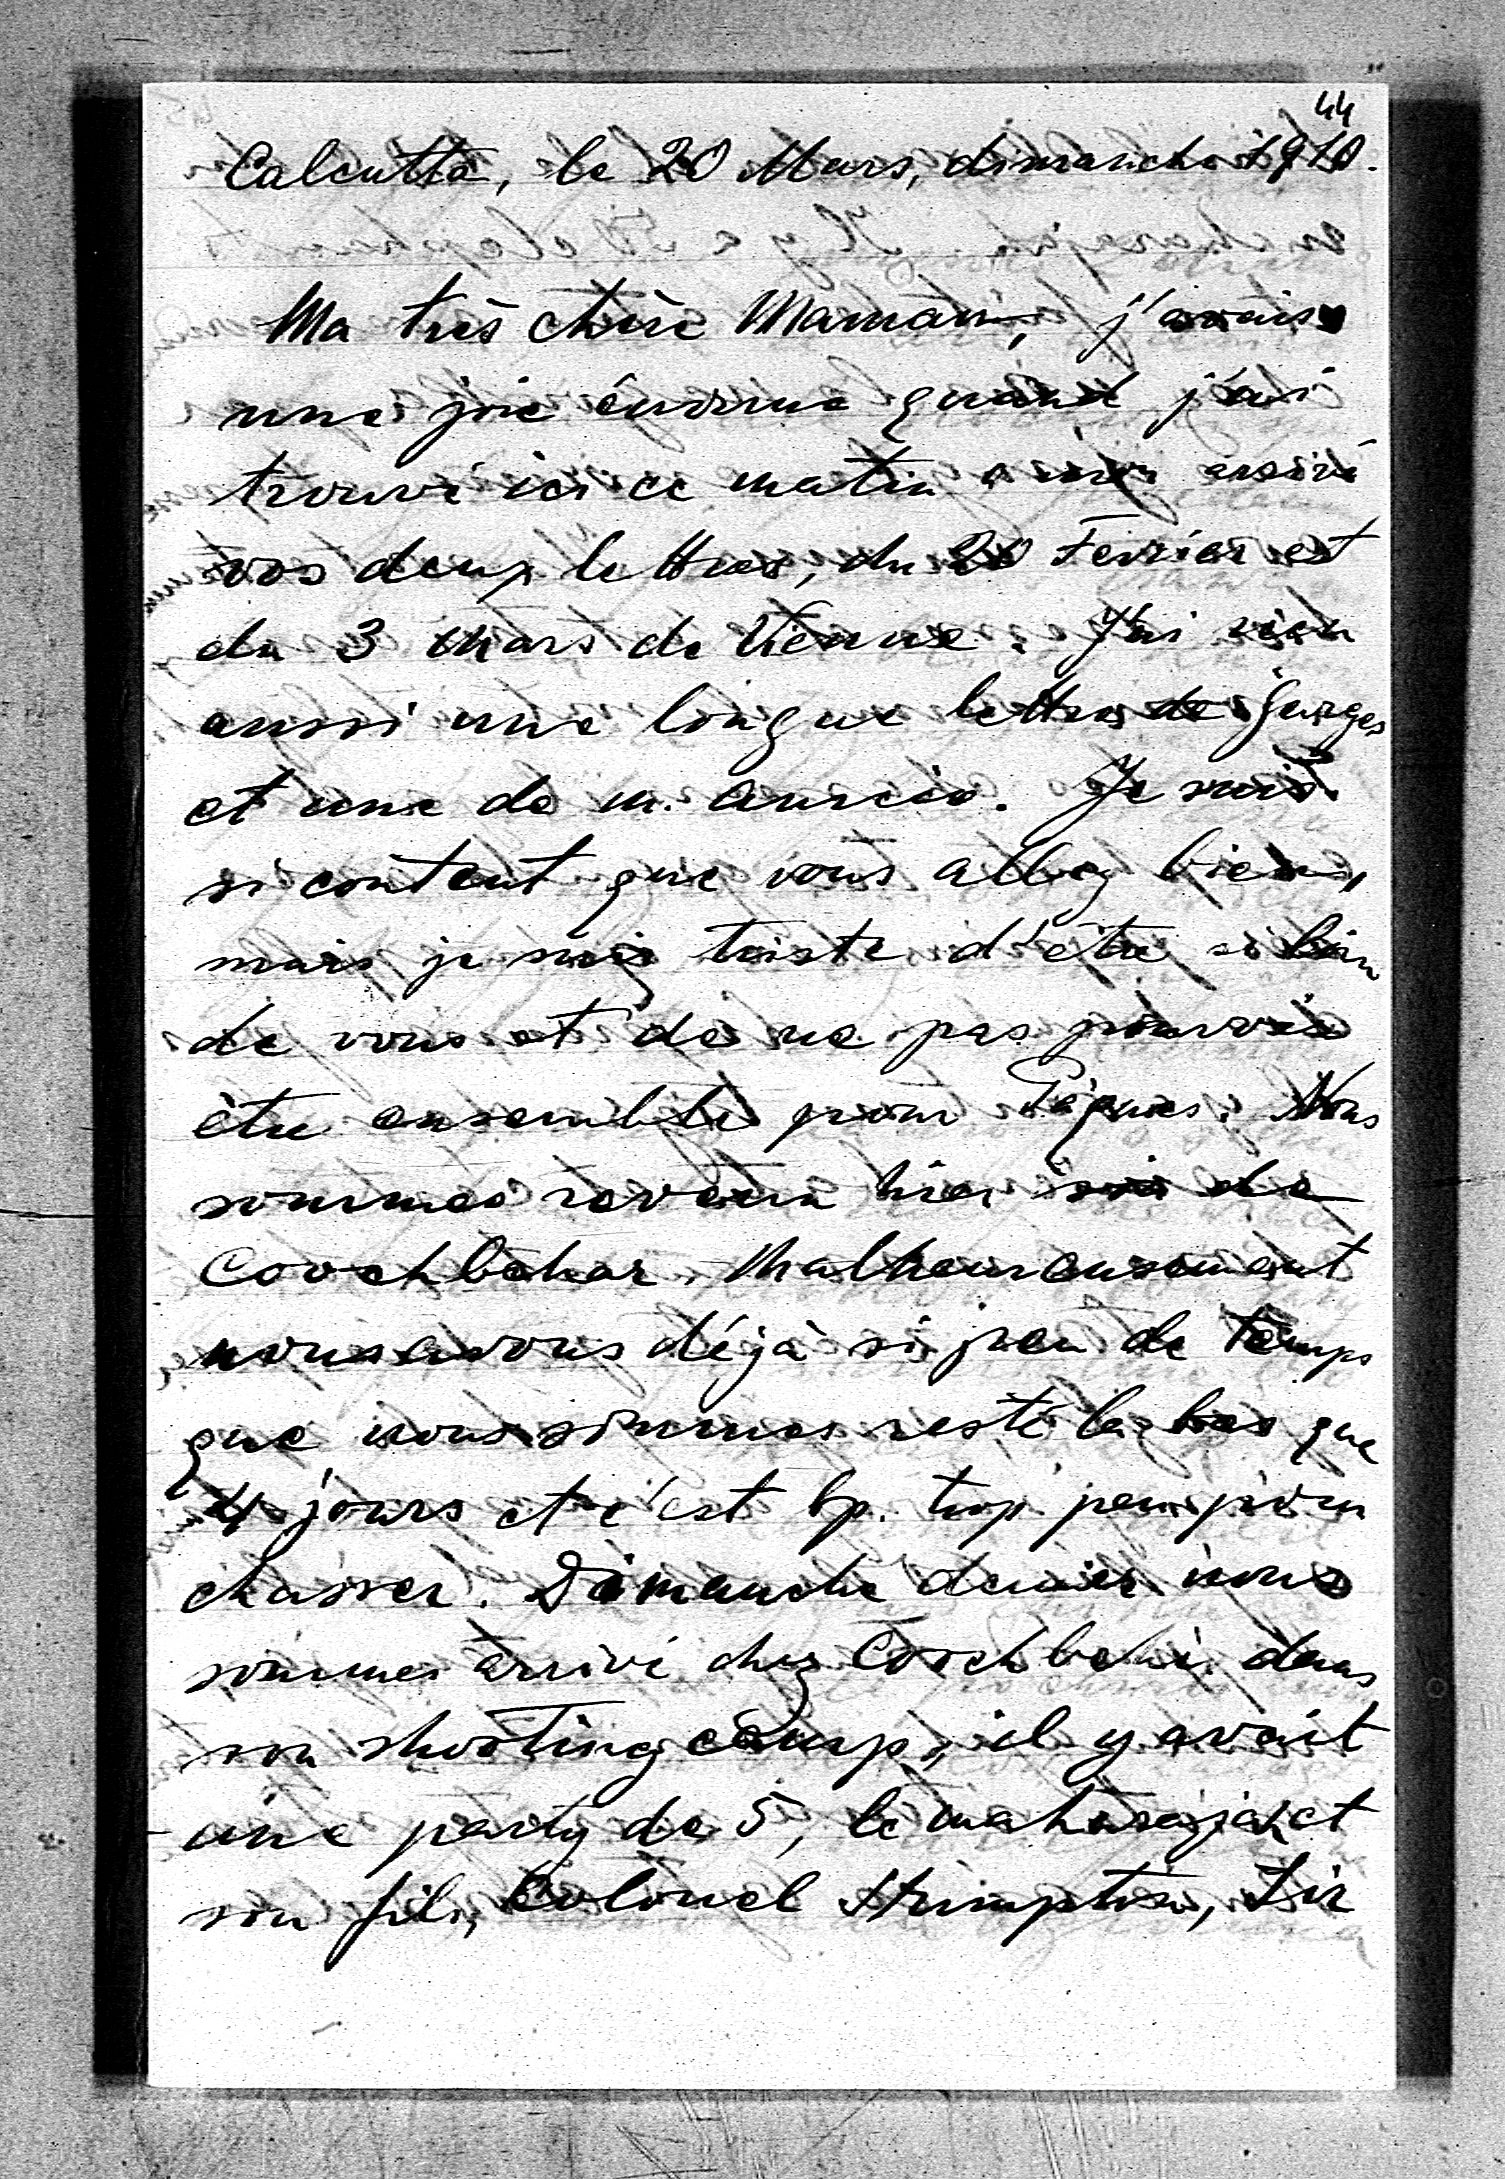 44
Calcutta, le 20 Mars, dimanche 1910.
Ma très chère Maman, j'avais
une joie énorme quand j'ai
trouvé ici ce matin a mon arrivé
vos deux lettres, du 20 Fevrier et
du 3 Mars de Vienne. J'ai
aussi une longue lettre de Georges
et une de m. Je suis
si content que vous allez bien,
mais je suis triste d'être si loin
de vous et de ne pas pouvoir
être ensemble pour Pâques. Nous
sommes revenu hier soir de
Coochbehar. Malheureusement
nous avons déjà si peu de temps
que nous sommes resté la bas que
4 jours et c'est bp. trop peu pour
chasser. Dimanche dernier nous
sommes arrivé chez Coochbehar dans
son shooting camp, il y avait
une party de 5, le maharajah et
son fils, Colonel Sir